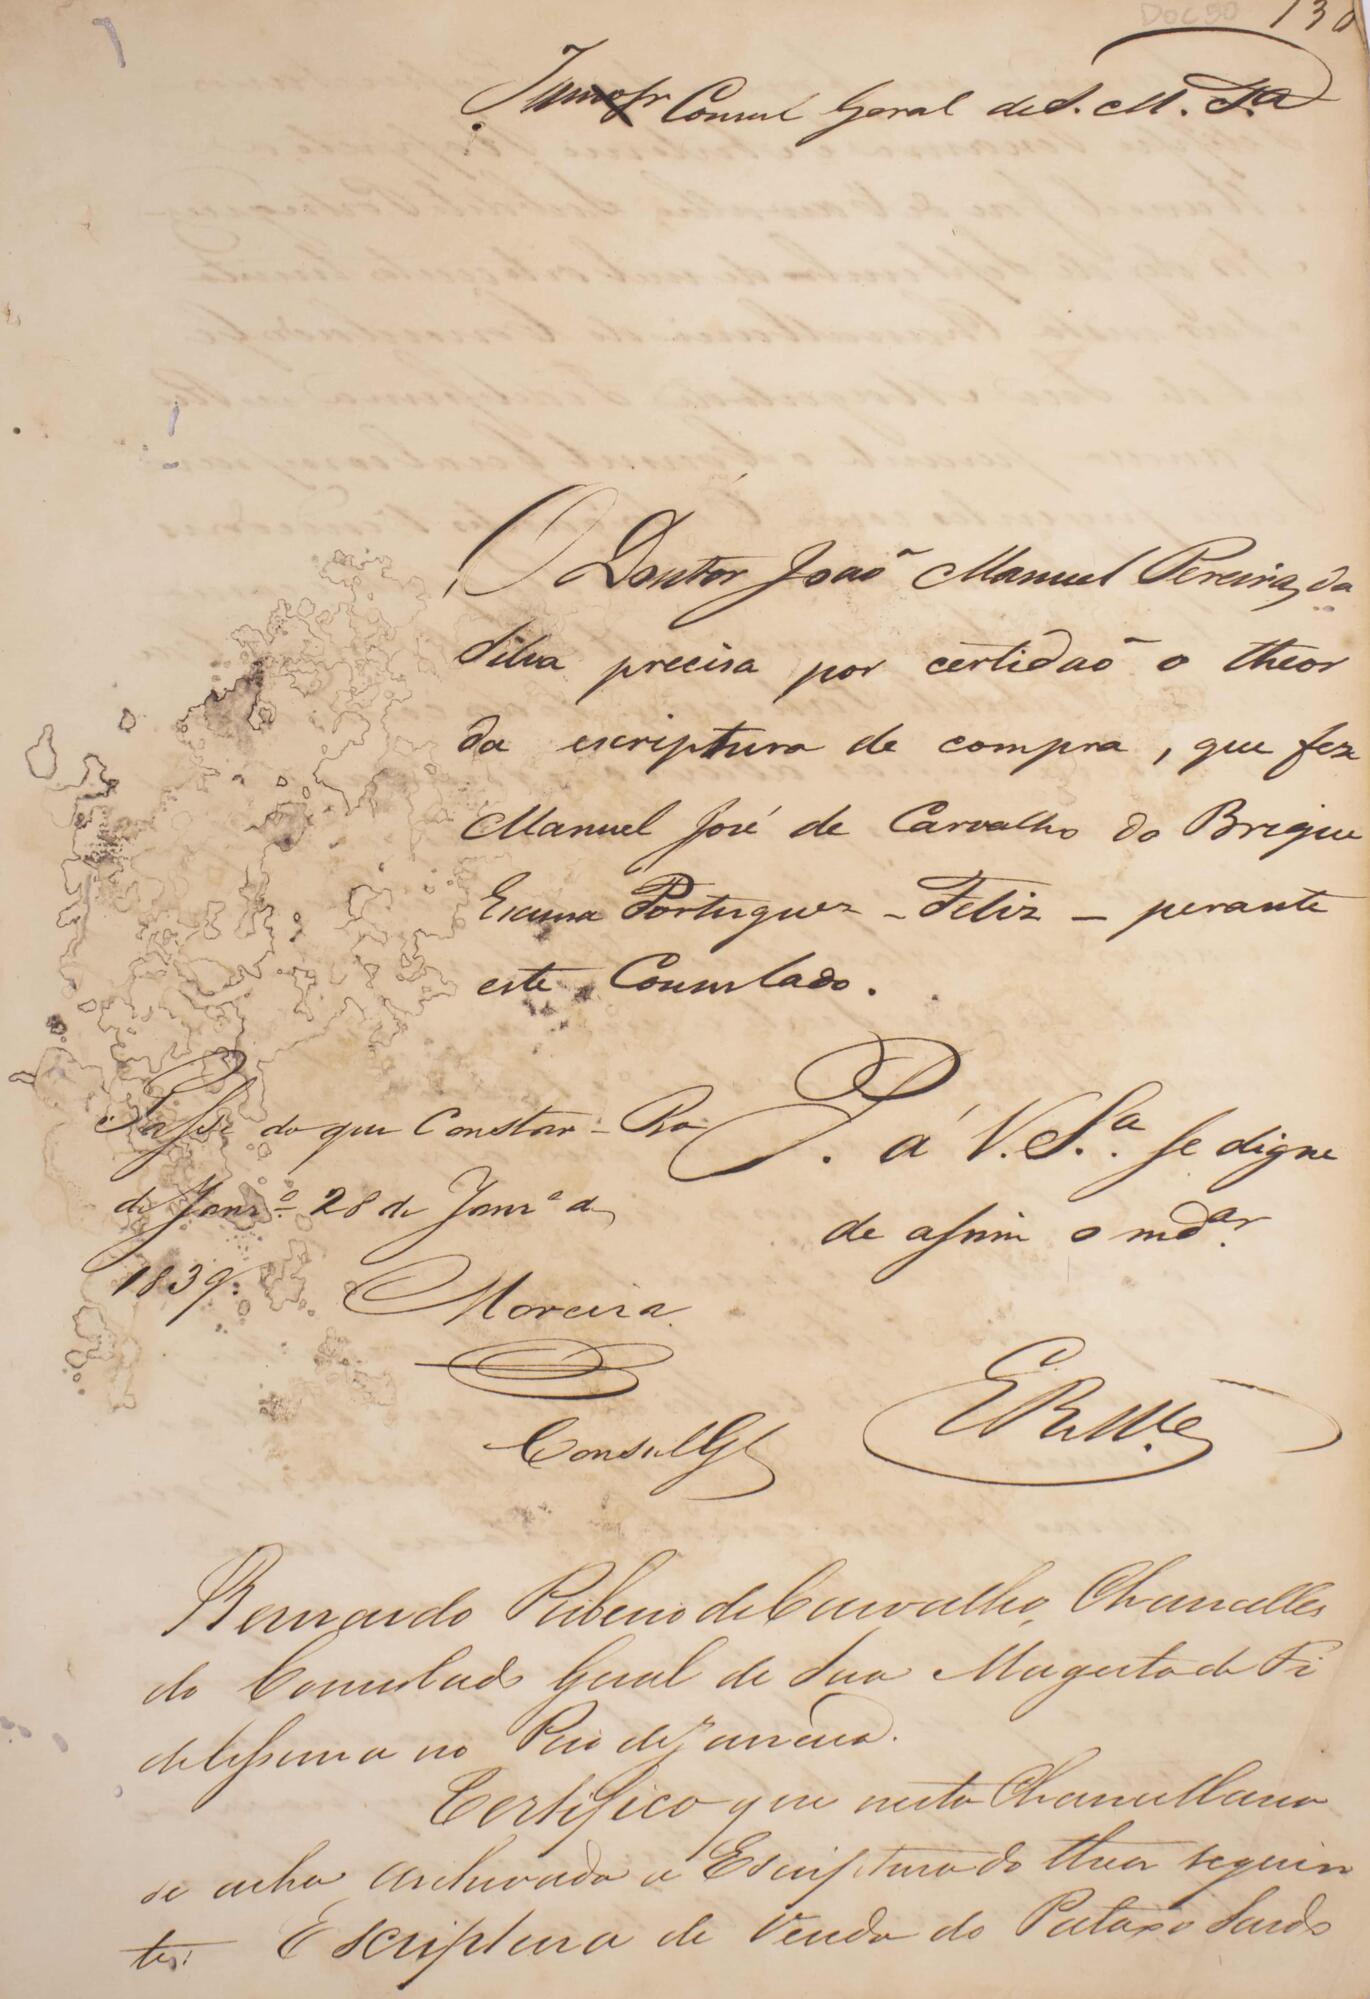 Doc 50 130
Consul Geral de S. M. F.a
O Doutor Joaõ Manuel Pereira da
Silva precisa por certidaõ o theor
da escriptura de compra, que fez
Manuel José de Carvalho do Brigue
Escuna Portuguez - Feliz - perante
este Consulado.
P. á V. S.a se digne
de assim o md.ar
Passe do que Constar - Rio
de Janr.o 28 de Janr.o de
1839.
Moreira
Consul G.l
E R M.ce
Bernardo Ribeiro de Carvalho, Chanceller
do Consulado Geral de Sua Magestade Fi
delissima no Rio de Janeiro.
Certifico que nesta Chancellaria
se acha archivada a Escriptura do theor seguin
te: Escriptura de Venda do Pataxo Sardo